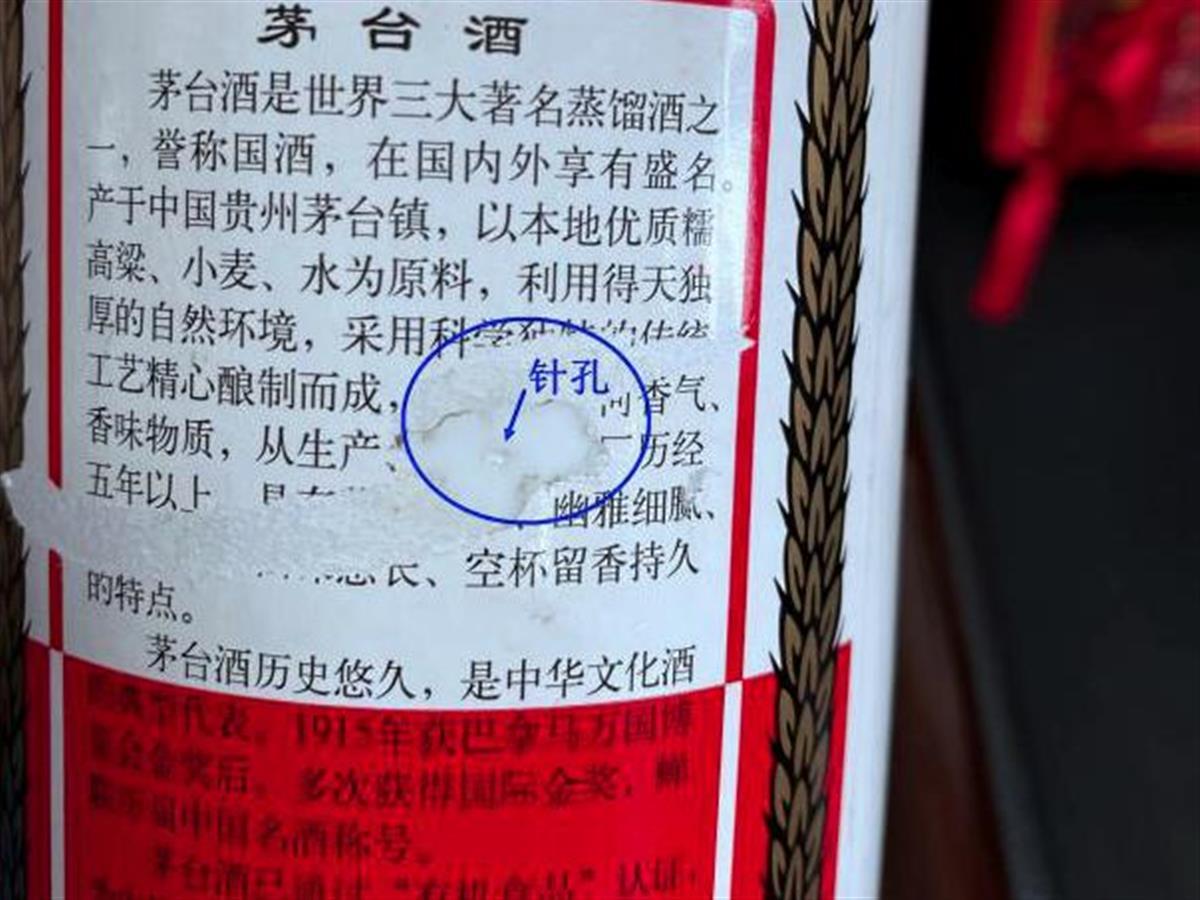 茅台酒
茅台酒是世界三大著名蒸馏酒之
一，誉称国酒，在国内外享有盛名。
产于中国贵州茅台镇，以本地优质糯
高粱、小麦、水为原料，利用得天独
厚的自然环境，采用科学独特的传统
针孔
工艺精心酿制而成， 香气、
香味物质，从生产、 历经
五年以上 幽雅细腻、
长、空杯留香持久
的特点。
茅台酒历史悠久，是中华文化酒
的典型代表。1915年获巴拿马万国博
览会金奖后。多次获得国际金奖，蝉
联历届中国名酒称号。
茅台酒已通过“有机食品”认证，